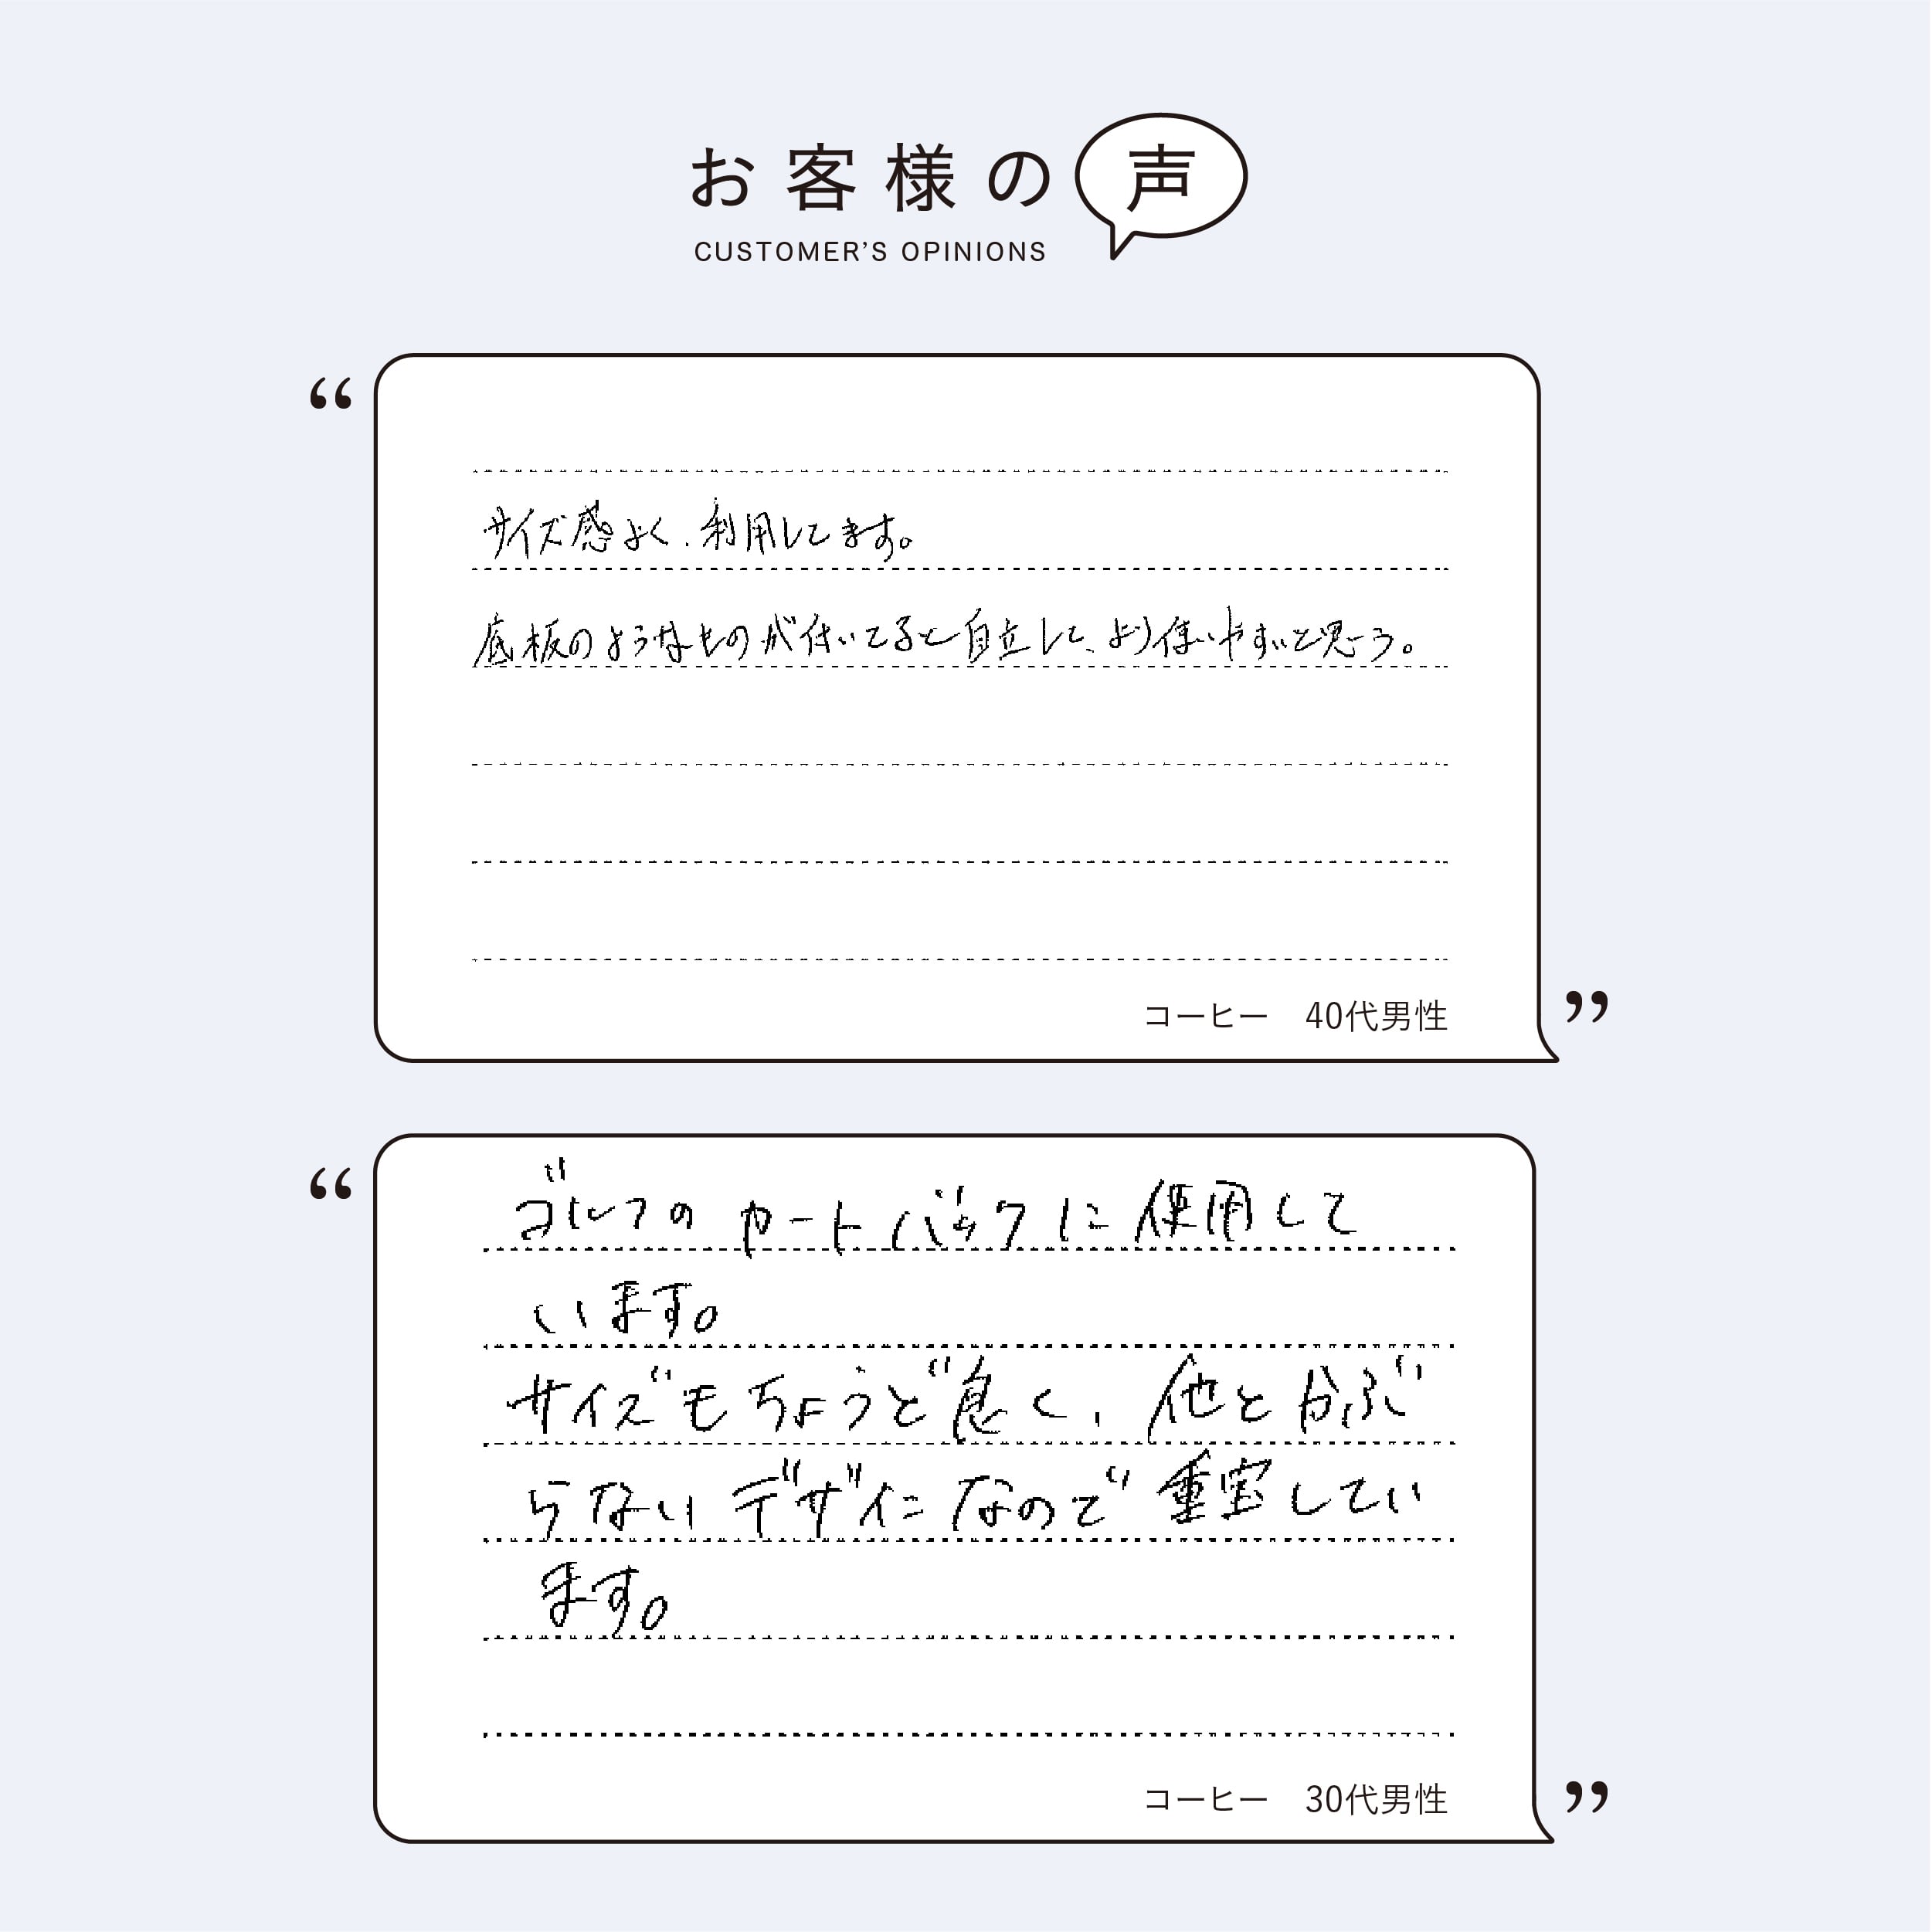 お客様の声
CUSTOMER'S OPINIONS
“
サイズ感よく、利用してます。
底板のようなものが付いてると自立して、より使いやすいと思う。
コーヒー　40代男性
”
“
ゴルフのカートバックに使用して
います。
サイズもちょうど良く、他とかぶ
らないデザインなので重宝してい
ます。
コーヒー　30代男性
”